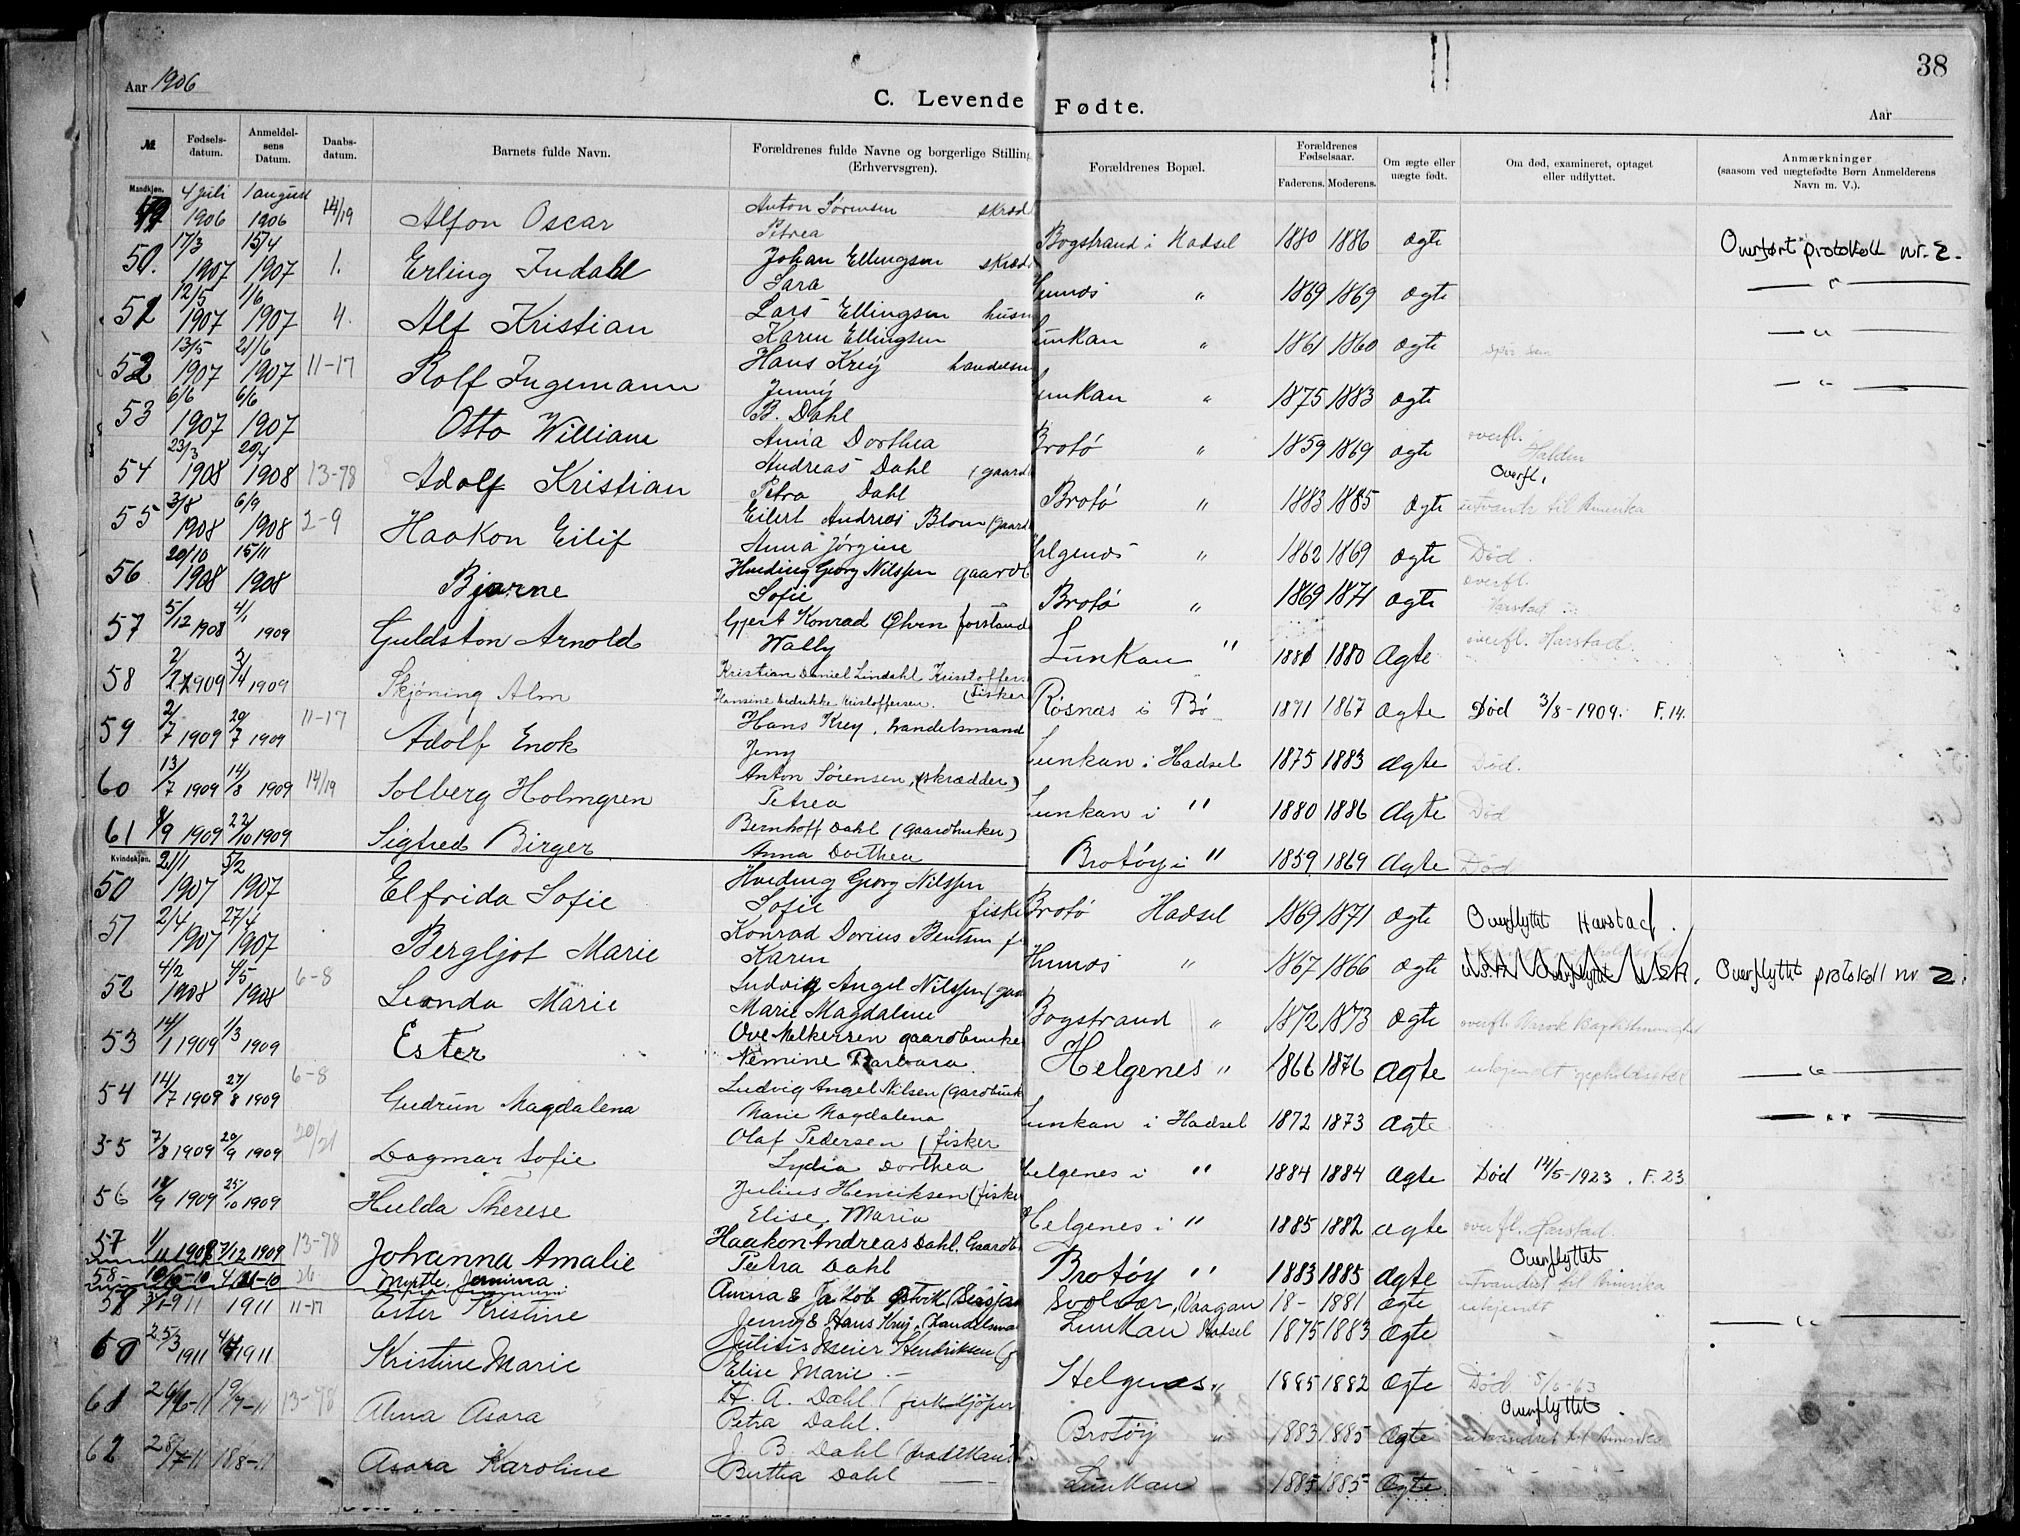 Aar 1906
38
C. Levende Fødte.
Aar
№ Fødsels-datum. Anmeldel-sens Datum. Daabs-datum. Barnets fulde Navn. Forældrenes fulde Navne og borgerlige Stilling (Erhvervsgren). Forældrenes Bopæl. Forældrenes Fødselsaar. Faderens. Moderens. Om ægte eller uægte født. Om død, examineret, optaget eller udflyttet. Anmærkninger (saasom ved uægtefødte Børn Anmelderens Navn m. V.).
Mandkjøn.
4 juli 1906 1 august 1906 14/19 Alfon Oscar Anton Sørensen skræd Petrea Bogstrand i Hadsel 1880 1886 Ægte Overført protokoll nr. 2.
50. 17/3 1907 15/4 1907 1. Erling Indahl Johan Ellingsen skræd Sara Hunnæs " 1869 1869 Ægte — " —
51 12/5 1907 1/6 1907 4. Alf Kristian Lars Ellingsen husm Karen Ellingsen Lunkan " 1861 1860 Ægte — " —
52 13/5 1907 21/6 1907 11-17 Rolf Ingemann Hans Krey handelsm Jenny Lunkan " 1875 1883 Ægte — " —
53 6/6 1907 6/6 1907 Otto William B. Dahl Anna Dorthea Brotø " 1859 1869 Ægte overfl. Halden
54 23/3 1908 20/4 1908 13-78 Adolf Kristian Andreas Dahl (gaard Petra Dahl Brotø " 1883 1885 Ægte Overfl. utvandr til Amerika
55 3/8 1908 6/9 1908 2-9 Haakon Eilif Eilert Andreas Blom (gaard Anna Jørgine Helgenæs " 1862 1869 Ægte Død
56 20/10 1908 15/11 1908 Bjarne Hveding Georg Nilssen gaardb Sofie Brotø " 1869 1871 Ægte overfl. Harstad
57 5/12 1908 4/1 1909 Guldston Arnold Gjert Konrad Olsen forstand Wally Lunkan " 1881 1880 Ægte overfl. Harstad
58 2/2 1909 3/4 1909 Skjøning Alm Kristian Daniel Lindahl Kristoffer. (Fisker Hansine Fredrikke Kristoffersen. Røsnæs i Bø 1871 1867 Ægte Død 3/8-1909. F.14.
59 2/7 1909 20/7 1909 11-17 Adolf Enok Hans Krey, handelsmand Jeny Lunkan i Hadsel 1875 1883 Ægte Død.
60 13/7 1909 14/8 1909 14/19 Solberg Holmgren Anton Sørensen, (skrædder) Petrea Lunkan i " 1880 1886 Ægte Død
61 8/9 1909 22/10 1909 Sigfred Birger Bernhoff Dahl (gaardbruker) Anna Dorthea Brotøy i " 1859 1869 Ægte Død
Kvindekjøn.
50 21/1 1907 5/2 1907 Elfrida Sofie Hveding Georg Nilssen Sofie fiske Brotø Hadsel 1869 1871 Ægte Overflyttet Harstad.
51 2/4 1907 27/4 1907 Bergljot Marie Konrad Dorius Bentsen f Karen Hunnæs " 1867 1866 Ægte Overflyttet protokoll nr 2.
52 4/2 1908 4/5 1908 6-8 Leonda Marie Ludvig Angel Nilssen (gaa Marie Magdalene Bogstrand " 1872 1873 Ægte overfl. Narvik
53 14/1 1909 1/3 1909 Ester Ove Melkersen gaardbruke Nemine Barbara. Helgenes " 1866 1876 Ægte — " —
54 14/7 1909 27/8 1909 6-8 Gudrun Magdalena Ludvig Angel Nilsen (gardbruk Marie Magdalena Lunkan i Hadsel 1872 1873 Ægte — " —
55 7/8 1909 20/9 1909 20/21 Dagmar Sofie Olaf Pedersen (fisker Lydia Dorthea Helgenes i " 1884 1884 Ægte Død 14/5-1923. F.23
56 18/9 1909 25/10 1909 Hulda Therese Julius Henriksen (fisker Elise Maria Helgenes i " 1885 1882 Ægte overfl. Harstad.
57 1/11 1908 7/12 1909 13-78 Johanna Amalie Haakon Andreas Dahl. Gaardb Petra Dahl Brotøy " 1883 1885 Ægte Overflyttet utvandret til Amerika
58 10/10-10 26 Myrtle Jemima Amina & Jakob Østvik Svolvær, Vaagan 18- 1881 Ægte ukjendt
3/1-911 1911 11-17 Ester Kristine Jenny & Hans Krey, (handelsma Lunkan Hadsel 1875 1883 Ægte — " —
60 25/3 1911 1911 Kristine Marie Julius Meier Hendriksen (f Elise Marie Helgenæs " 1885 1882 Ægte Død 8/6-63
61 26/6-11 19/7-11 13-78 Alma Asora H. A. Dahl (fiskekjøper Petra Dahl. Brotøy " 1883 1885 Ægte Overflyttet utvandret til Amerika
62 28/7-11 18 8-11 Asora Karoline J. B. Dahl Bertha Dahl Lunkan 1885 1885 Ægte.